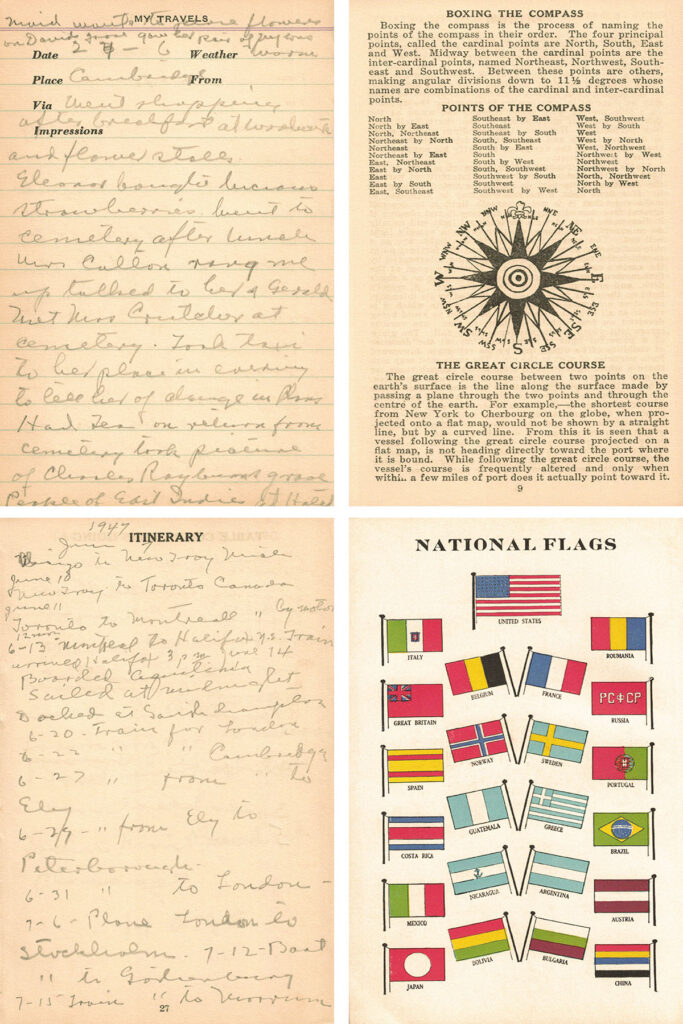 Maid wants to give flowers
MY TRAVELS
on David
Date 2 7 - 6 Weather Warm
Place Cambridge From
Via Went shopping
after breakfast at Woolworth
Impressions
and flower stalls
Eleanor bought luscious
strawberries went to
cemetery after lunch
Mrs Callon rang me
up talked to her & Gerald
Met Mrs Crutcher at
cemetery. Took taxi
to her place in evening
to tell her of change in plans
Had Tea on return from
cemetery took picture
of Charles Rayburns grave
People of East Indies at Hotel
BOXING THE COMPASS
Boxing the compass is the process of naming the
points of the compass in their order. The four principal
points, called the cardinal points are North, South, East
and West. Midway between the cardinal points are the
inter-cardinal points, named Northeast, Northwest, South-
east and Southwest. Between these points are others,
making angular divisions down to 11½ degrees whose
names are combinations of the cardinal and inter-cardinal
points.
POINTS OF THE COMPASS
North
North by East
North, Northeast
Northeast by North
Northeast
Northeast by East
East, Northeast
East by North
East
East by South
East, Southeast
Southeast by East
Southeast
Southeast by South
South, Southeast
South by East
South
South by West
South, Southwest
Southwest by South
Southwest
Southwest by West
West, Southwest
West by South
West
West by North
West, Northwest
Northwest by West
Northwest
Northwest by North
North, Northwest
North by West
North
N
NNE
NE
ENE
E
ESE
SE
SSE
S
SSW
SW
WSW
W
WNW
NW
NNW
THE GREAT CIRCLE COURSE
The great circle course between two points on the
earth's surface is the line along the surface made by
passing a plane through the two points and through the
centre of the earth. For example,—the shortest course
from New York to Cherbourg on the globe, when pro-
jected onto a flat map, would not be shown by a straight
line, but by a curved line. From this it is seen that a
vessel following the great circle course projected on a
flat map, is not heading directly toward the port where
it is bound. While following the great circle course, the
vessel's course is frequently altered and only when
withi.. a few miles of port does it actually point toward it.
9
1947
ITINERARY
June 9
to New Troy Mich
June 10
New Troy to Toronto Canada
June 11
Toronto to Montreal " by motor
6-13 Montreal to Halifax N.S. Train
arrived Halifax 3 p.m. June 14
Boarded Aquitania
Sailed at midnight
Docked at Southampton
6-20- Train for London
6-22 " " Cambridge
6-27 " from " to
Ely
6-29 - " from Ely to
Peterborough-
6-31 " to London -
7-6- Plane London to
Stockholm. 7-12- Boat
" to Gothenburg
7-15 Train " to Morrum
27
NATIONAL FLAGS
UNITED STATES
ITALY
ROUMANIA
BELGIUM
FRANCE
GREAT BRITAIN
РСФСР
RUSSIA
NORWAY
SWEDEN
SPAIN
PORTUGAL
GUATEMALA
GREECE
COSTA RICA
BRAZIL
NICARAGUA
ARGENTINA
MEXICO
AUSTRIA
BOLIVIA
BULGARIA
JAPAN
CHINA